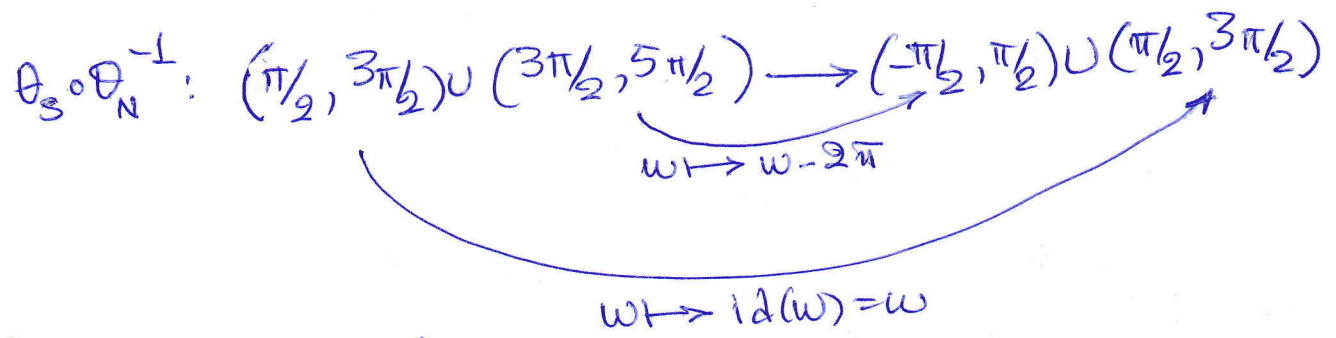 θ_S ∘ θ_N^{-1} : (π/2, 3π/2) ∪ (3π/2, 5π/2) ⟶ (-π/2, π/2) ∪ (π/2, 3π/2)
w ↦ w - 2π
w ↦ id(w) = w